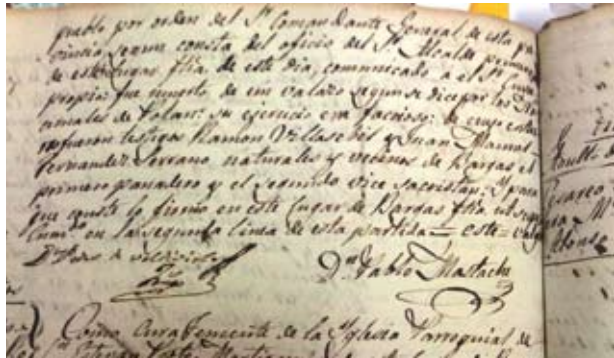 pueblo por orden del Sr. Comandante General de esta pro
vincia segun consta del oficio del Sr. Alcalde primero
de este Lugar, fha. de este dia, comunicado a el Sr. Cura
propio: fue muerto de un valazo segun se dice por los
de Polan: su ejercicio era facioso: de cuyo
fueron testigos Ramon Villasebil y Juan Manuel
Fernandez Serrano, naturales y vecinos de Bargas el
primero panadero y el segundo vice sacristan. Y para
que conste lo firmo en este Lugar de Bargas fha. ut supra
en la segunda linea de esta partida = este = vale
Dn. Pablo Mastache
Como Cura Teniente de la Yglesia Parroquial de
Alonso